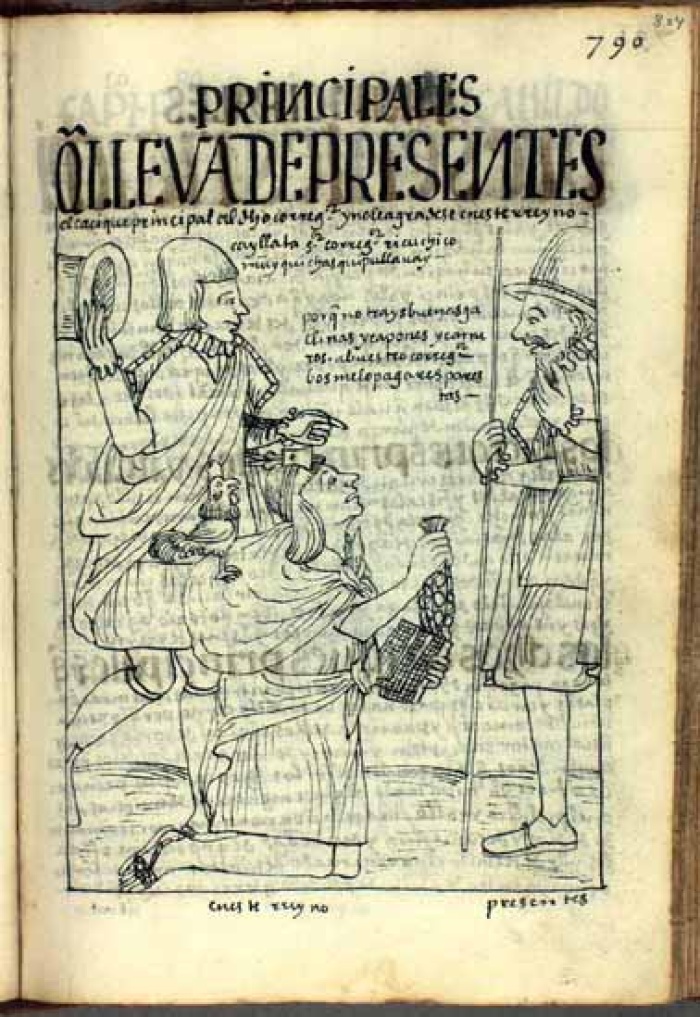 790
PRINCIPALES
Q̃ LLEVA DE PRESENTES
el cacique principal al dho correg.or y no le agradese en este rreyno -
cayllata s.r correg.or ricuchico
muyquichasquipullauay -
porq̃ no trays buenas ga
llinas y capones y carne
ros a buestro correg.or
bos me lo pagareys pores
tas -
en este rreyno
presentes